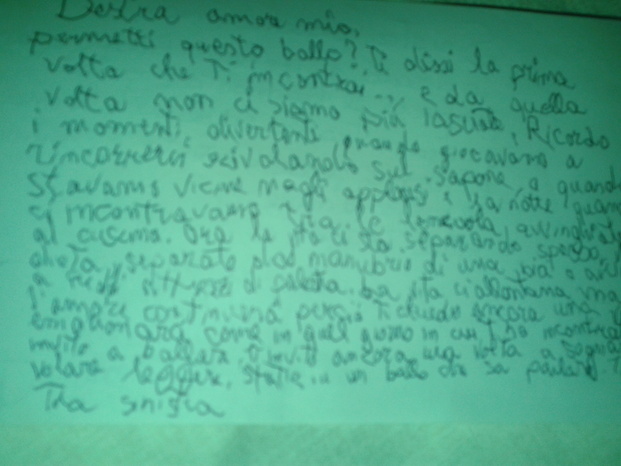 Destra amore mio,
permetti questo ballo? Ti dissi la prima
volta che Ti incontrai... e da quella
volta non ci siamo più lasciate. Ricordo
i momenti divertenti quando giocavamo a
rincorrerci scivolando sul sapone, o quando
stavamo vicine negli applausi e la notte
ci incontravamo tra le lenzuola,
al cuscino. Ora la vita ci sta separando spesso,
separate dal manubrio di una bici o
a pezzi di ci allontana ma
l'amore continua perciò ti chiedo ancora una
come in quel giorno in cui t'ho
a ballare, t'invito ancora una volta a
volare leggere, in un ballo che sa parlare
Tua sinistra